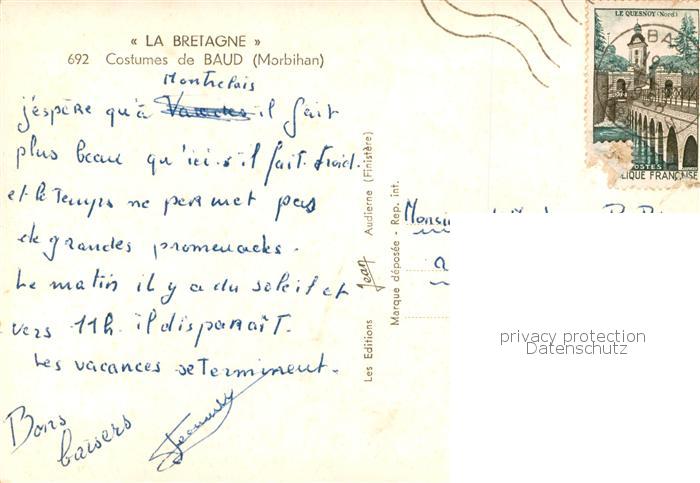 « LA BRETAGNE »
692 Costumes de BAUD (Morbihan)
Montrelais
j'espère qu'à il fait
plus beau qu'ici. s'il fait froid.
et le temps ne permet pas
de grandes promenades.
Le matin il y a du soleil et
vers 11h. il disparaît.
Les vacances se terminent.
Bons
baisers
Les Editions Jean Audierne (Finistère)
Marque déposée - Rep. int.
LE QUESNOY (Nord)
BA
POSTES
LIQUE FRANÇAISE
Monsi
privacy protection
Datenschutz